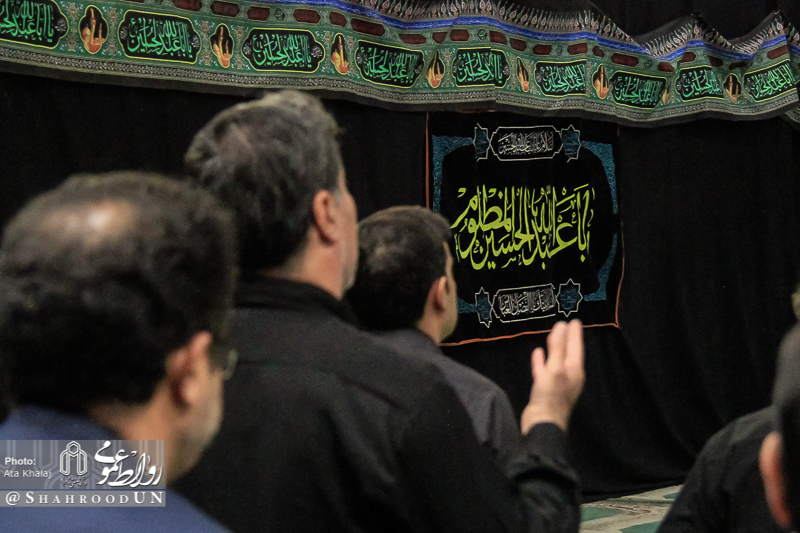 یا اباعبدالله الحسین
یا اباعبدالله الحسین
یا اباعبدالله الحسین
یا اباعبدالله الحسین
یا اباعبدالله الحسین
یا اباعبدالله الحسین
یا اباعبدالله الحسین
یا اباعبدالله الحسین
یا اباعبدالله الحسین
یا اباعبدالله الحسین المظلوم
Photo:
Ata Khalaj
روابط عمومی
@ShahroodUN